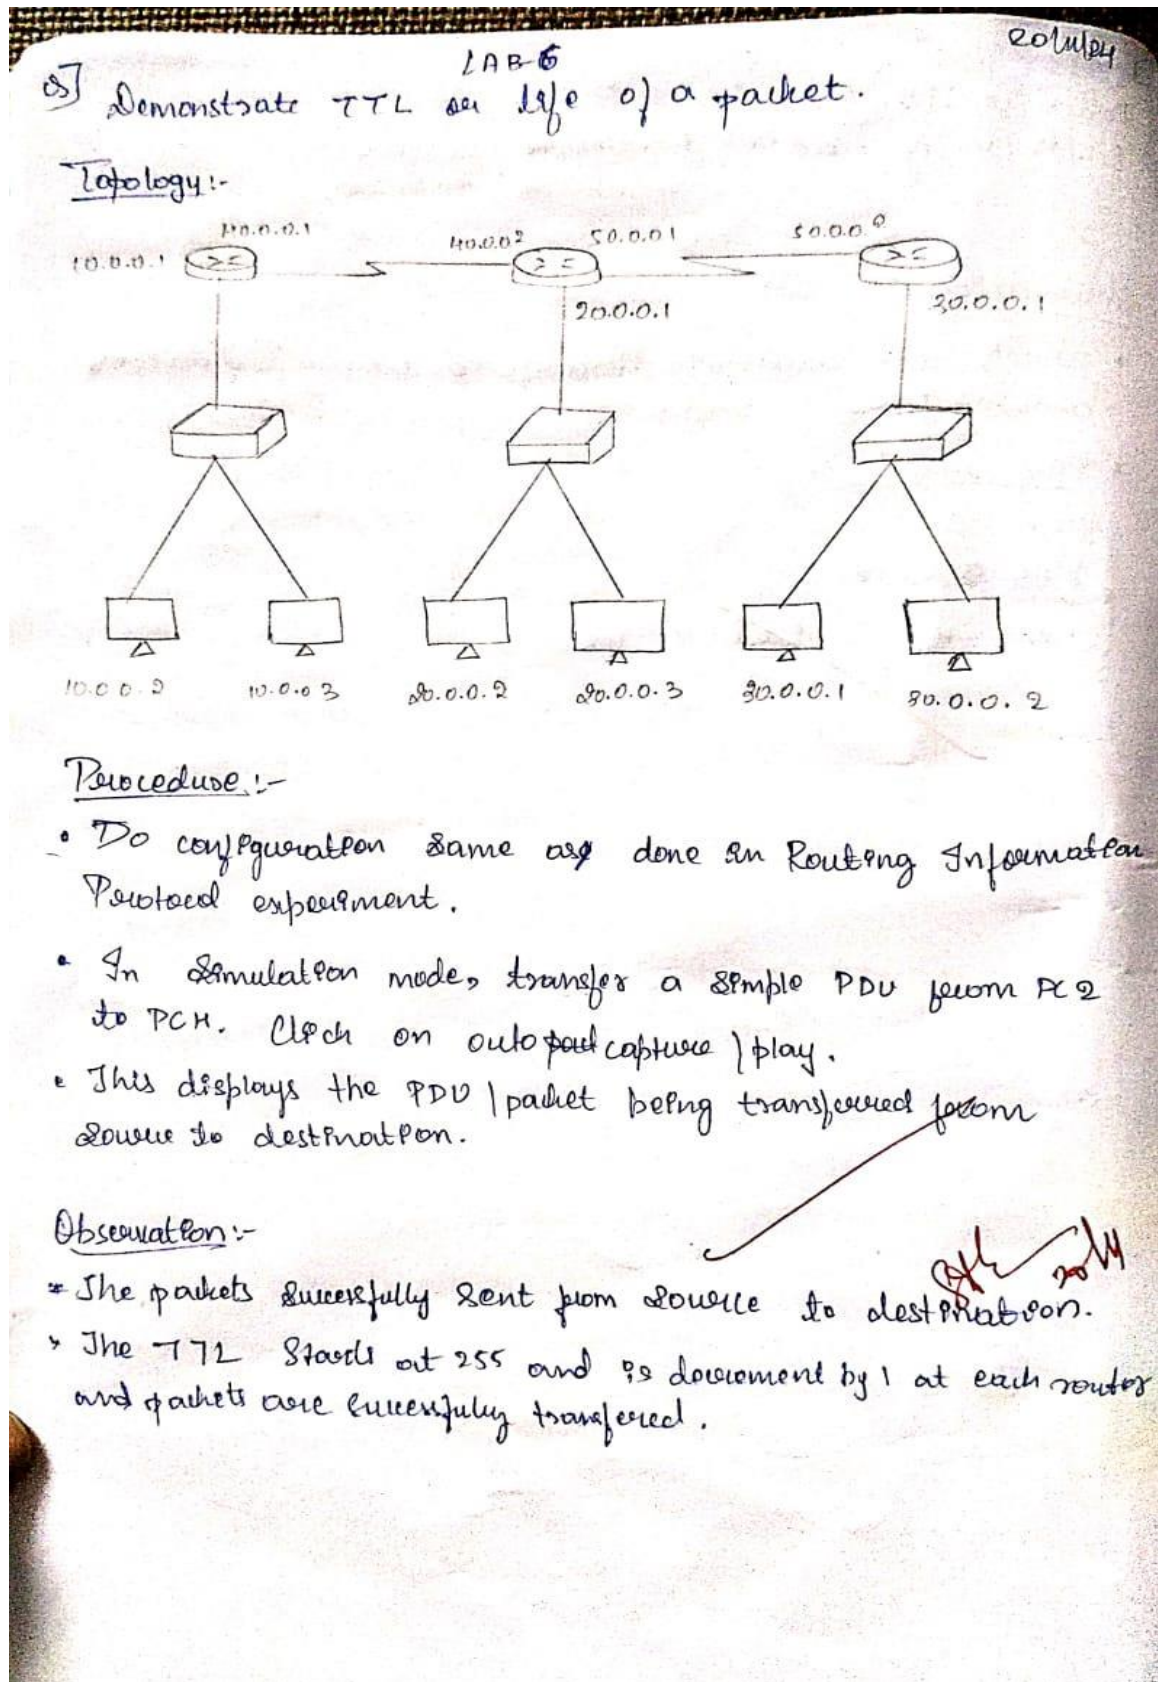 20/11/24
LAB-6
Q] Demonstrate TTL or life of a packet.
Topology:-
40.0.0.1 40.0.0.2 50.0.01 50.0.0.
10.0.0.1
20.0.0.1 30.0.0.1
10.0 0.2 10.0.0 3 20.0.0.2 20.0.0.3 30.0.0.1 30.0.0.2
Procedure:-
• Do configuration same as done in Routing Information
Protocol experiment.
• In Simulation mode, transfer a simple PDU from PC2
to PC4. Click on auto capture / play.
• This displays the PDU / packet being transferred from
source to destination.
Observation:-
* The packets successfully sent from source to destination.
* The TTL Starts at 255 and is decrement by 1 at each router
and packets are successfuly transfered.